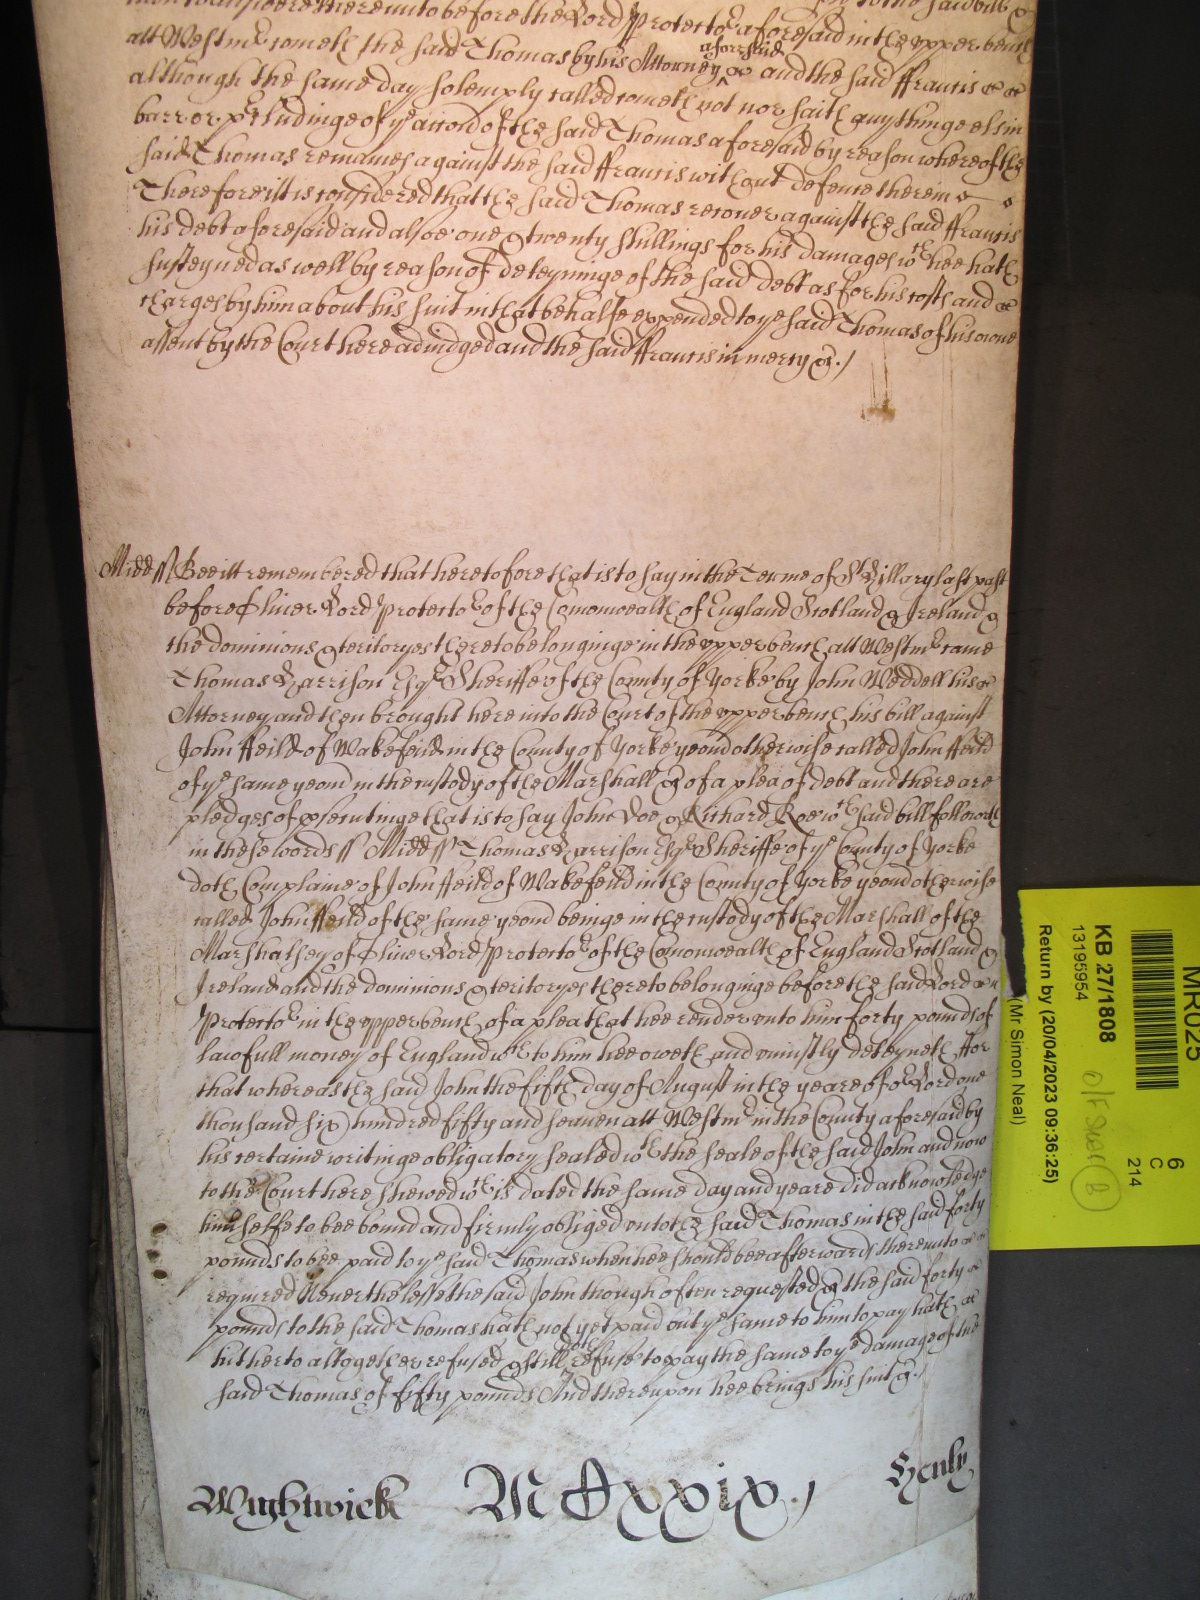 thereunto before the Lord Protector aforesaid in the upper bench
att Westmr cometh the said Thomas by his Attorney aforesaid & and the said ffrancis
although the same day solemply called cometh not nor saith any thinge els in
barr or pcludinge of ye accon of the said Thomas aforesaid by reason whereof the
said Thomas remaines against the said ffrancis without defence therein
Therefore itt is considered that the said Thomas recover against the said ffrancis
his debt aforesaid and alsoe one & twenty shillings for his damages wch hee hath
susteyned as well by reason of deteyninge of the said debt as for his costs and
charges by him about his suit in that behalfe expended to ye said Thomas of his owne
assent by the Court here adiudged and the said ffrancis in mercy &c./
Midd ss Bee itt remembered that heretofore that is to say in the Terme of St Hillary last past
before Oliver Lord Protector of the Comonwealth of England Scotland & Ireland &
the dominions & teritoryes thereto belonginge in the upper bench att Westmr came
Thomas Harrison Esqr Sheriffe of the County of Yorke by John Weddell his
Attorney and then brought here into the Court of the upper bench his bill against
John ffeild of Wakefeild in the County of Yorke yeom otherwise called John ffeild
of ye same yeom in the custody of the Marshall &c of a plea of debt and there are
pledges of psecutinge that is to say John Doe & Richard Roe wch said bill followeth
in these words ss Midd ss Thomas Harrison Esqr Sheriffe of ye County of Yorke
doth Complaine of John ffeild of Wakefeild in the County of Yorke yeom otherwise
called John ffeild of the same yeom beinge in the custody of the Marshall of the
Marshalsey of Oliver Lord Protector of the Comonwealth of England Scotland &
Ireland and the dominions & teritoryes thereto belonginge before the said Lord
Protector in the upper bench of a plea that hee render unto him forty pounds of
lawfull money of England wch to him hee oweth and uniustly deteyneth ffor
that whereas the said John the fifth day of August in the yeare of or Lord one
thousand six hundred fifty and seaven att Westmr in the County aforesaid by
his certaine writinge obligatory sealed wth the seale of the said John and now
to the Court here shewed wch is dated the same day and yeare did acknowledge
himselfe to bee bound and firmly obliged unto the said Thomas in the said forty
pounds to bee paid to ye said Thomas when hee should bee afterwards thereunto
required Neverthelesse the said John though often requested &c the said forty
pounds to the said Thomas hath not yet paid but ye same to him to pay hath
hitherto altogether refused & still doth refuse to pay the same to ye damage of the
said Thomas of fifty pounds And thereupon hee brings his suit &c./
Wightwick MDxxix / Henly
MR025
6
C
214
KB 27/1808
13195954
Return by (20/04/2023 09:36:25)
(Mr Simon Neal)